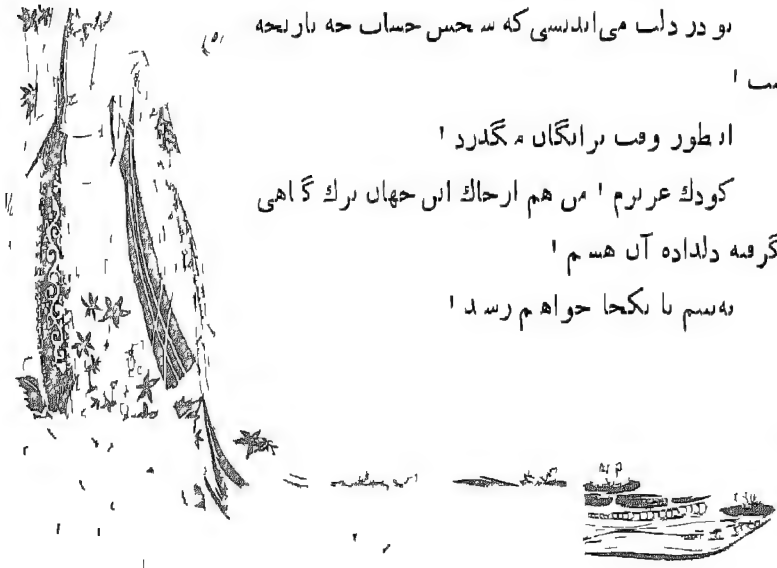 تو در دلت می‌اندیشی که حساب چه بازیچه
ست !
اینطور وقت برایگان میگذرد !
کودك عزیزم ! من هم ازخاك این جهان برك گاهی
گرفته دلداده آن هستم !
به‌بینم تا بکجا خواهم رسید !